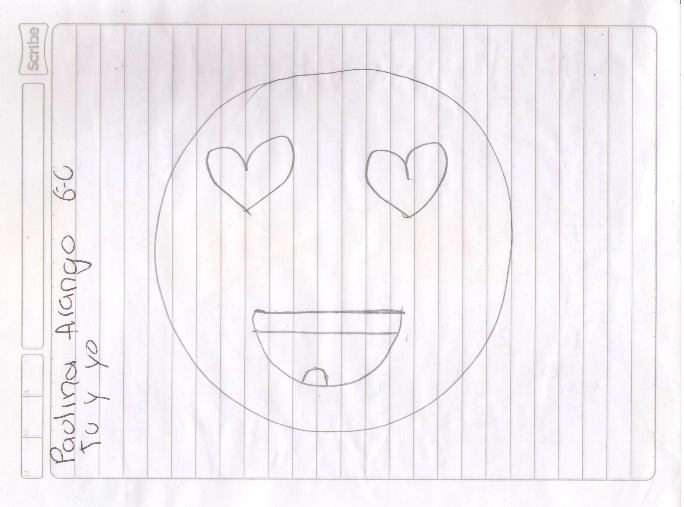 Scribe
Paulina Arango 6-C
TU y yo